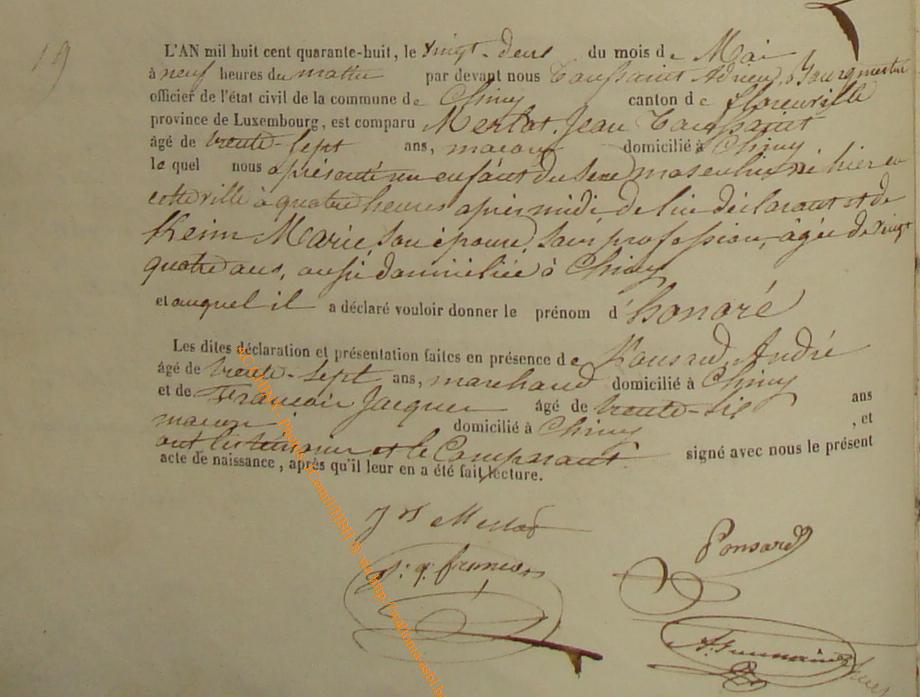 19
L'AN mil huit cent quarante-huit, le vingt-deux du mois de Mai
à neuf heures du matin par devant nous Toussaint Adrien, Bourgmestre
officier de l'état civil de la commune de Chiny canton de florenville
province de Luxembourg, est comparu Merlot Jean Toussaint
âgé de trente-sept ans, maçon domicilié à Chiny
le quel nous a présenté un enfant du sexe masculin, né hier en
cette ville à quatre heures après midi de lui déclarant et de
Keim Marie, son épouse, sans profession, âgée de vingt
quatre ans, aussi domiciliée à Chiny
et auquel il a déclaré vouloir donner le prénom d'honoré
Les dites déclaration et présentation faites en présence de Ponsard, André
âgé de trente-sept ans, marchand domicilié à Chiny
et de François Jacques âgé de trente-six ans
maçon domicilié à Chiny, et
ont les témoins et le Comparant signé avec nous le présent
acte de naissance, après qu'il leur en a été fait lecture.
Merlot
Ponsard
françois